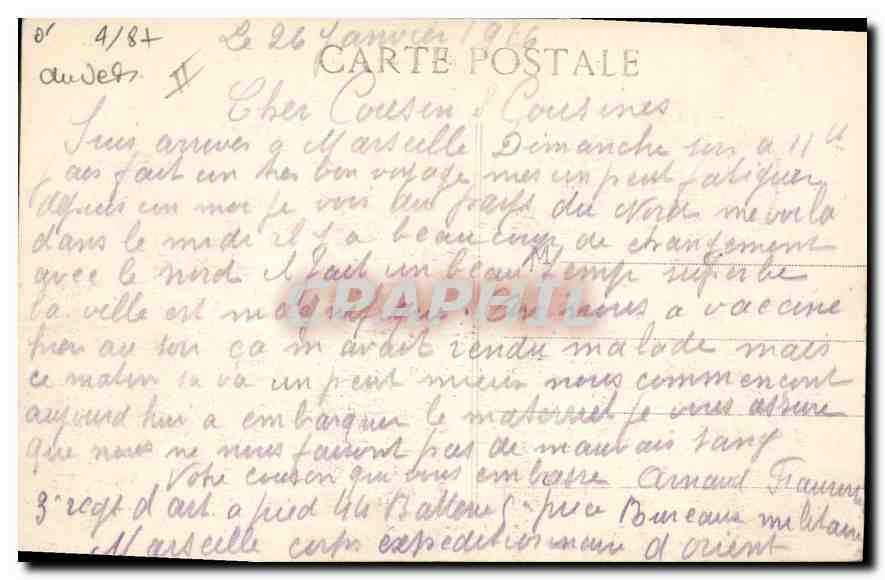 4/87
Le 26 Janvier 1916
CARTE POSTALE
II
Cher Cousin & Cousines
Suis arrives a Marseille Dimanche soir a 11
fait un tres bon voyage mes un peut fatiguer
depuis un moi je vois du pays du Nord me voila
dans le midi il y a beaucoup de changement
avec le nord il fait un beau temp superbe
la ville est magnifique. On nous a vaccine
hier au soir ça m avait rendu malade mais
ce matin sa va un peut mieux nous commencont
aujourd hui a embarquer le materiel je vous assure
que nous ne nous faisont pas de mauvais sang
Votre cousin qui vous embrasse Arnaud
3e regt d art a pied 44 Batterie 5 piece Bureau militaire
Marseille corps expeditionnaire d orient
CPAPHIL